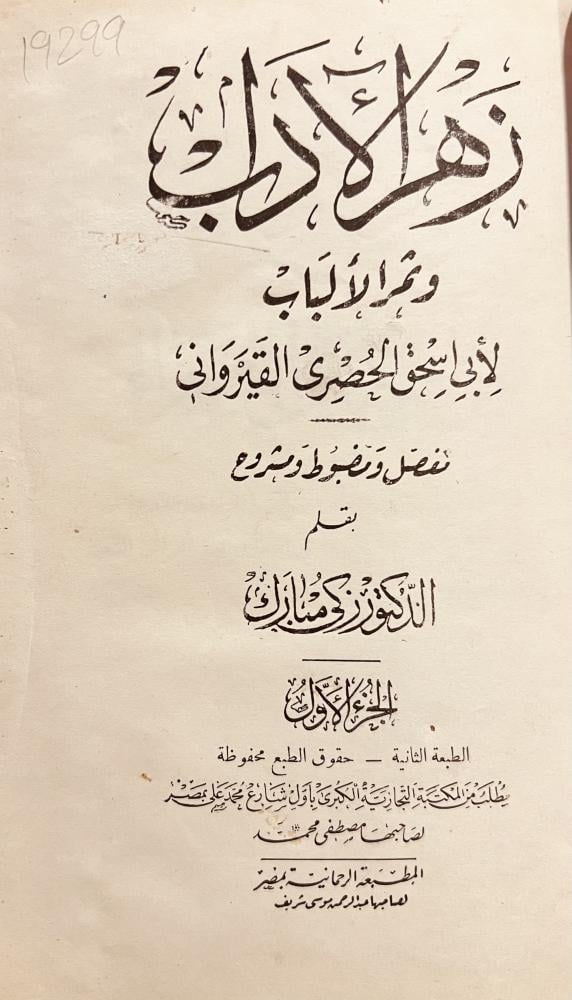 19299
زَهْرُ الْآدَابِ
وثمر الألبَابْ
لِأَبِي اِسْحٰق الحُصْرِى القَيْرَوَانى
مفصّل ومضبُوط ومشروح
بقلم
الدّكتور زكى مُبَارَك
الجُزءُ الأوَّلُ
الطبعة الثانية — حقوق الطبع محفوظة
يطلبُ مِنَ المكتبَةِ التجَاريَّةِ الكبرَى بأوَّلِ شَارع محمّد عَلى بمصْرَ
لصَاحبهَا مصْطفى محمّد
المطبَعة الرحمانية بمصْرَ
لصاحبها عبد الرحمن موسى شريف